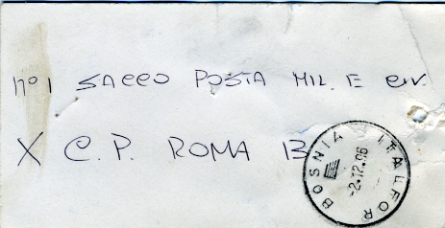 n°1 SACCO POSTA MIL. E CIV.
X C.P. ROMA 13
BOSNIA ITALFOR
-2.12.96